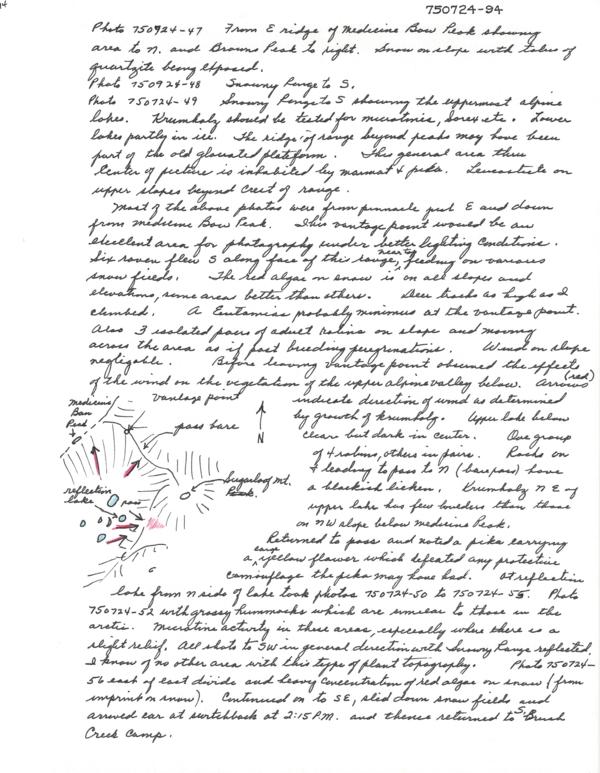 750724-94
Photo 750924-47 From E ridge of Medicine Bow Peak showing
area to N. and Browns Peak to right. Snow on slope with talus of
quartzite being exposed.
Photo 750924-48 Snowny Range to S.
Photo 750724-49 Snowny Range to S showing the uppermost alpine
lakes. Krumholy should be tested for microtinis, Sorex etc. Lower
lakes partly in ice. The ridge of range beyond peaks may have been
part of the old glaciated platform. This general area thru
center of picture is inhabited by marmot & pika. Leucosticte on
upper slopes beyond crest of range.
Most of the above photos were from pinnacle just E and down
from medicine Bow Peak. This vantage point would be an
excellent area for photography under better lighting conditions.
Six raven flew S along face of the range, nearby feeding on various
snow fields. The red algae on snow is on all slopes and
elevations, some area better than others. Deer tracks as high as I
climbed. A Eutamias probably minimus at the vantage point.
Also 3 isolated pairs of adult robins on slope and moving
across the area as if post breeding peregrinations. Wind on slope
negligible. Before leaving vantage point observed the effects
of the wind on the vegetation of the upper alpine valley below. Arrows (red)
vantage point
indicate direction of wind as determined
Medicine
Bow
Peak
pass bare
N
by growth of krumholy. Upper lake below
clear but dark in center. One group
of 4 robins, others in pairs. Rocks on
leading to pass to N (bare pass) have
Sugarloaf Mt.
Peak
a blackish lichen. Krumholy N E of
reflection
lake
upper lake has few boulders than those
on NW slope below medicine Peak.
Returned to pass and noted a pika carrying
a large yellow flower which defeated any protective
camouflage the pika may have had. At reflection
lake from N side of lake took photos 750724-50 to 750724-55. Photo
750724-52 with grassy hummocks which are similar to those in the
arctic. Microtine activity in these areas, especially where there is a
slight relief. All shots to SW in general direction with Snowny Range reflected.
I know of no other area with this type of plant topography. Photo 750724-
56 east of east divide and heavy concentration of red algae on snow (from
imprint on snow). Continued on to SE, slid down snow fields and
arrived car at switchback at 2:15 P.M. and thence returned to S. Brush
Creek Camp.